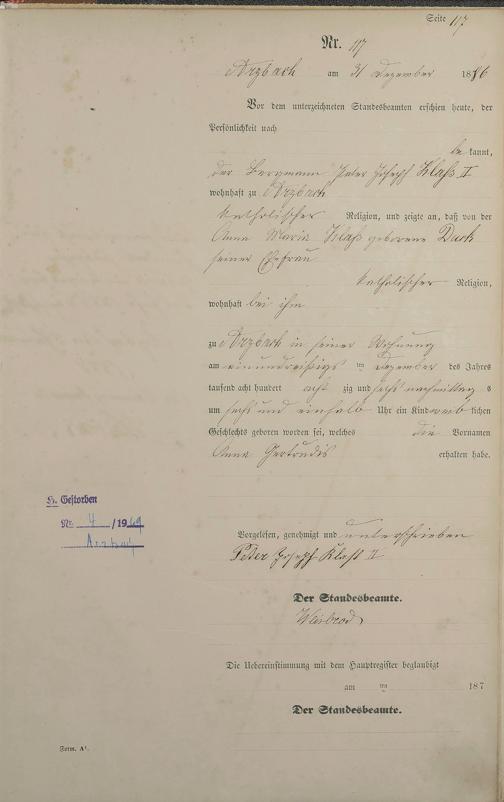 Seite 117
Nr. 117
Arzbach am 31 Dezember 1886
Vor dem unterzeichneten Standesbeamten erschien heute, der
Persönlichkeit nach
be kannt,
der Bergmann Peter Joseph Klaß II
wohnhaft zu Arzbach
katholischer Religion, und zeigte an, daß von der
Anna Maria Klaß geborene Duch
seiner Ehefrau
katholischer Religion,
wohnhaft bei ihm
zu Arzbach in seiner Wohnung
am einunddreißigs ten Dezember des Jahres
tausend acht hundert acht zig und sechs nachmittag s
um sechs und einhalb Uhr ein Kind weib lichen
Geschlechts geboren worden sei, welches die Vornamen
Anna Gertrudis erhalten habe.
H. Gestorben
Nr. 4 /1969
Arzbach
Vorgelesen, genehmigt und unterschrieben
Peter Joseph Klaß II
Der Standesbeamte.
Weisbrod
Die Uebereinstimmung mit dem Hauptregister beglaubigt
am ten 187
Der Standesbeamte.
Form. A¹.